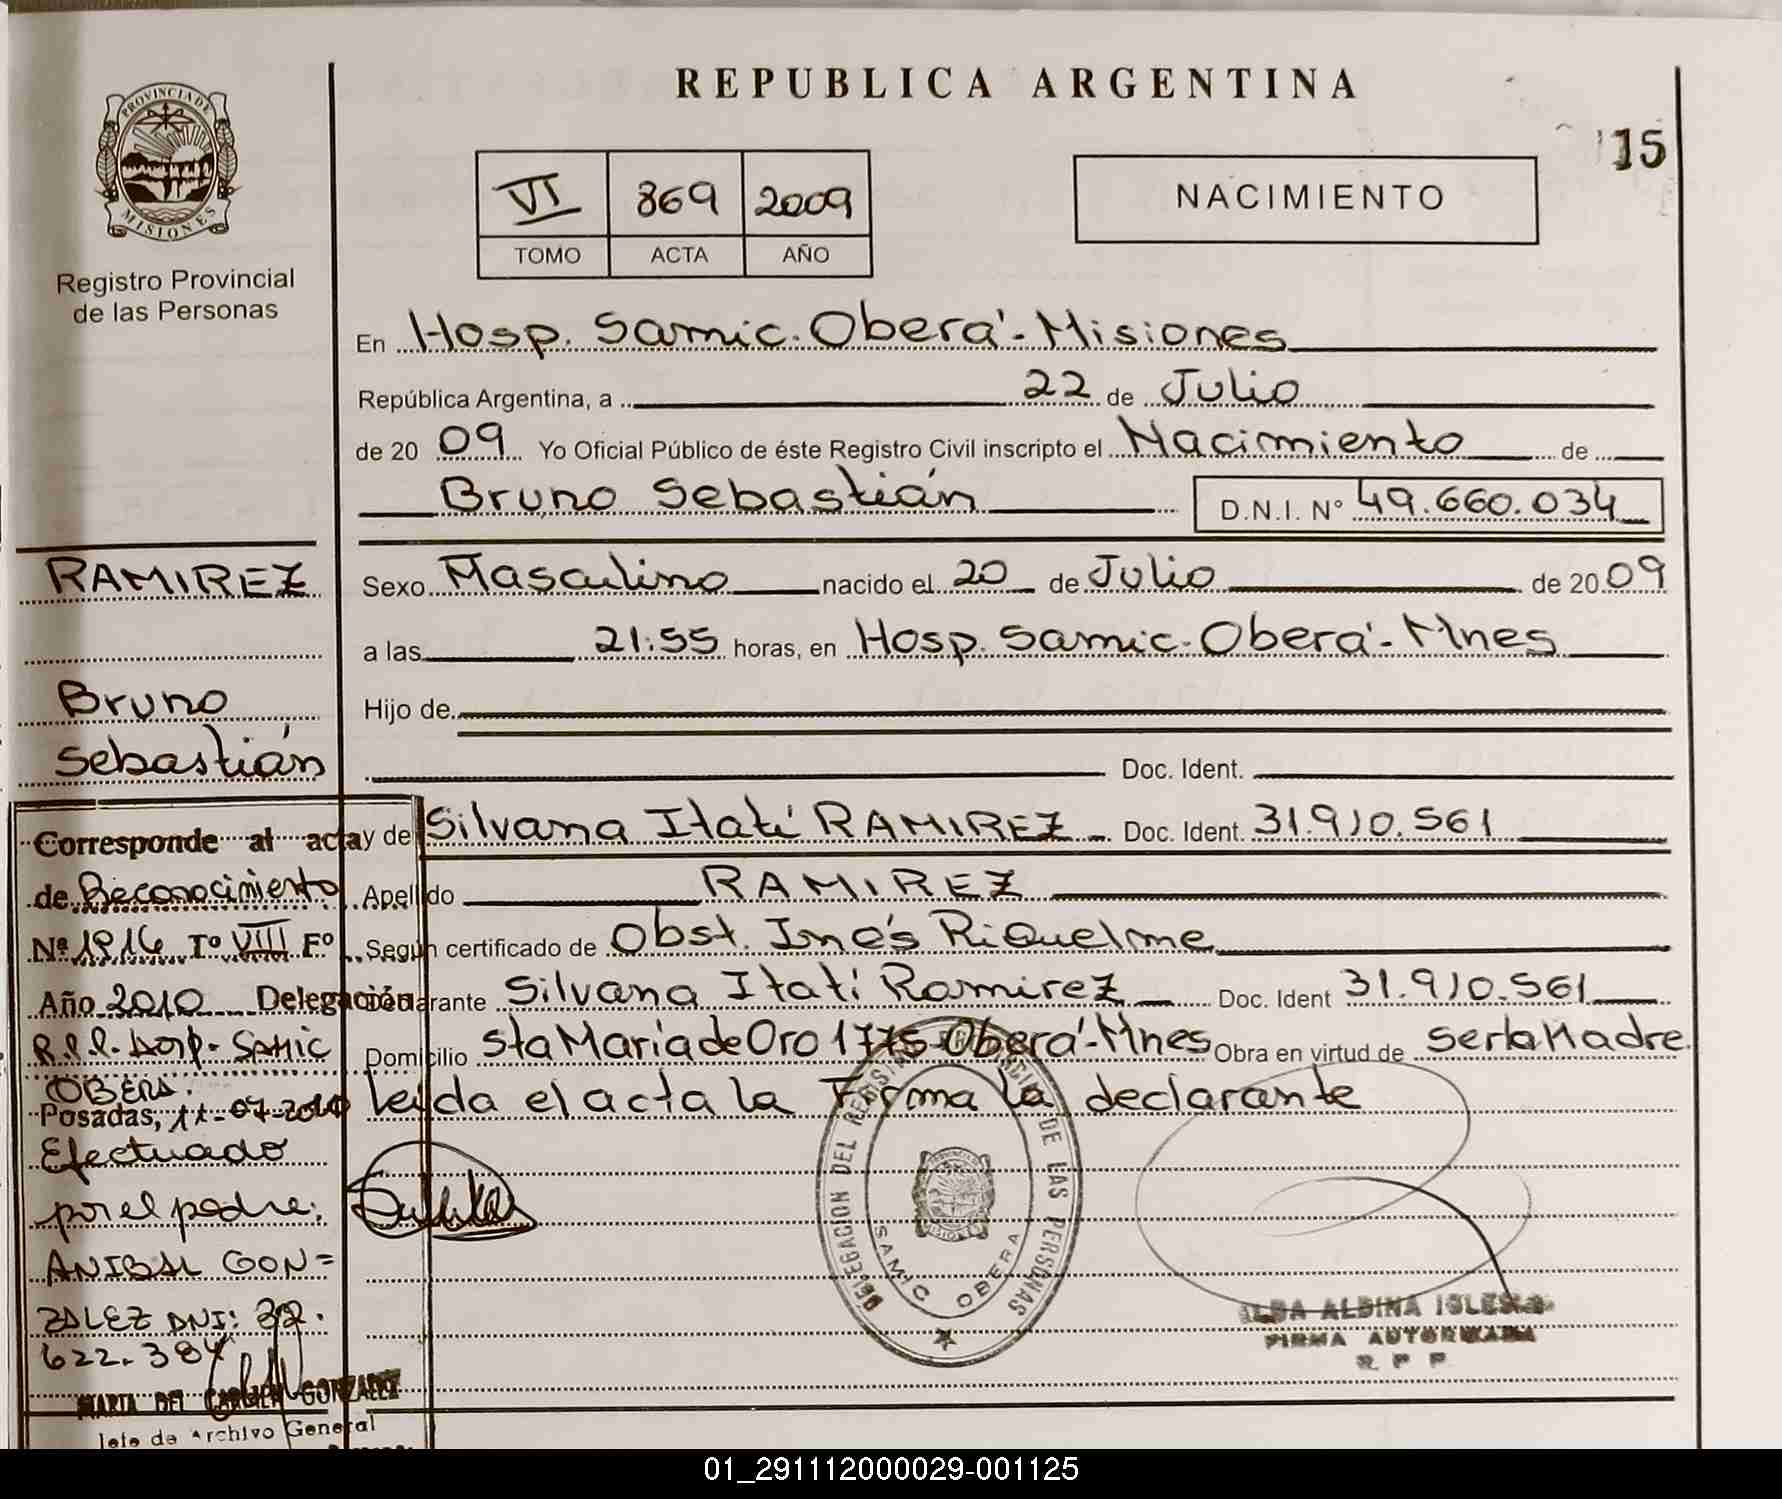 REPUBLICA ARGENTINA
15
PROVINCIA DE MISIONES
Registro Provincial
de las Personas
VI 869 2009
TOMO ACTA AÑO
NACIMIENTO
En Hosp. Samic. Oberá - Misiones
República Argentina, a 22 de Julio
de 20 09 Yo Oficial Público de éste Registro Civil inscripto el Nacimiento de
Bruno Sebastián D.N.I. Nº 49.660.034
RAMIREZ
Bruno
Sebastián
Sexo Masculino nacido el 20 de Julio de 20 09
a las 21:55 horas, en Hosp. Samic - Oberá - Mnes
Hijo de
Doc. Ident.
y de Silvana Itatí RAMIREZ Doc. Ident. 31.910.561
Apellido RAMIREZ
Según certificado de Obst. Inés Riquelme
Declarante Silvana Itatí Ramirez Doc. Ident 31.910.561
Domicilio Sta María de Oro 1775 Oberá - Mnes Obra en virtud de Ser la Madre
leída el acta la Firma la declarante
Corresponde al acta
de Reconocimiento
Nº 1914 Tº VIII Fº
Año 2010 Delegación
R.P.P. Hosp. SAMIC
OBERA.
Posadas, 11-07-2010
Efectuado
por el padre:
ANIBAL GON=
ZALEZ DNI: 32.
622.384
MARIA DEL CARMEN GONZALEZ
Jefe de Archivo General
DELEGACION DEL REGISTRO PROVINCIAL DE LAS PERSONAS
SAMIC OBERA
ALBA ALBINA IGLESIAS
FIRMA AUTORIZADA
R. P. P.
01_291112000029-001125